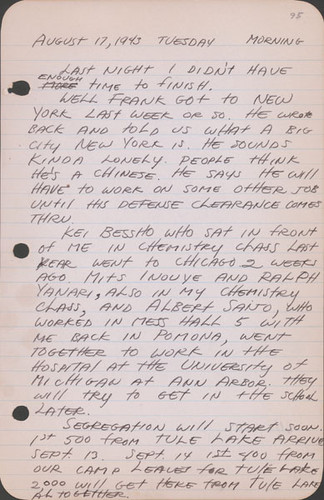 95
AUGUST 17, 1943 TUESDAY MORNING
LAST NIGHT I DIDN'T HAVE
ENOUGH
MORE TIME TO FINISH.
WELL FRANK GOT TO NEW
YORK LAST WEEK OR SO. HE WROTE
BACK AND TOLD US WHAT A BIG
CITY NEW YORK IS. HE SOUNDS
KINDA LONELY. PEOPLE THINK
HE'S A CHINESE. HE SAYS HE WILL
HAVE TO WORK ON SOME OTHER JOB
UNTIL HIS DEFENSE CLEARANCE COMES
THRU.
KEI BESSHO WHO SAT IN FRONT
OF ME IN CHEMISTRY CLASS LAST
YEAR WENT TO CHICAGO 2 WEEKS
AGO. MITS INOUYE AND RALPH
YANARI, ALSO IN MY CHEMISTRY
CLASS, AND ALBERT SAIJO, WHO
WORKED IN MESS HALL 5 WITH
ME BACK IN POMONA, WENT
TOGETHER TO WORK IN THE
HOSPITAL AT THE UNIVERSITY OF
MICHIGAN AT ANN ARBOR. THEY
WILL TRY TO GET IN THE SCHOOL
LATER.
SEGREGATION WILL START SOON.
1ST 500 FROM TULE LAKE ARRIVE
SEPT 13. SEPT. 14 1ST 400 FROM
OUR CAMP LEAVES FOR TULE LAKE
2,000 WILL GET HERE FROM TULE LAKE
ALTOGETHER.